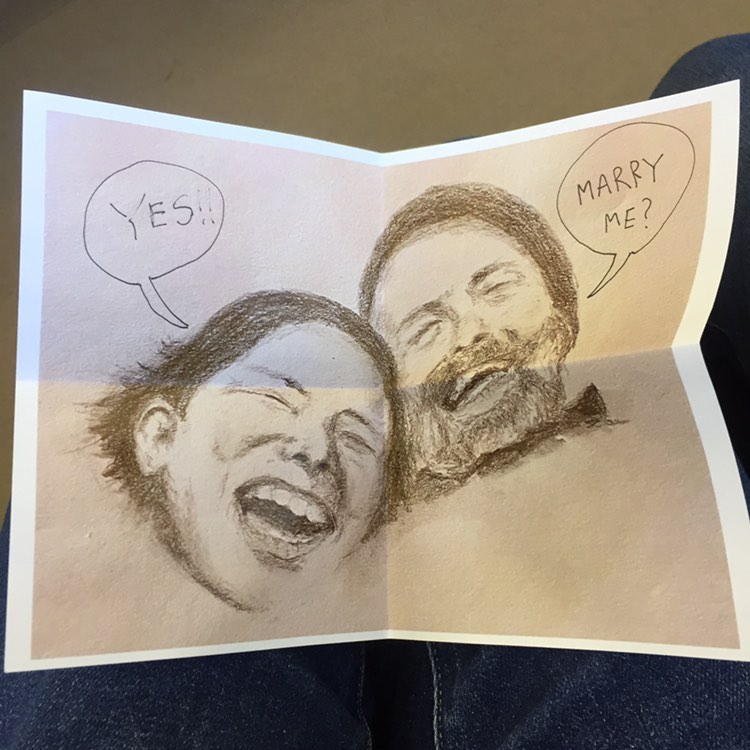 YES!!
MARRY
ME?